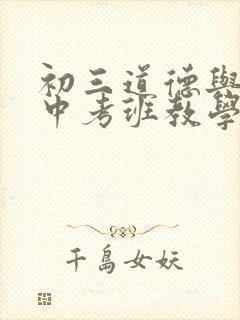 初三道德與
中考班教學
千島女妖